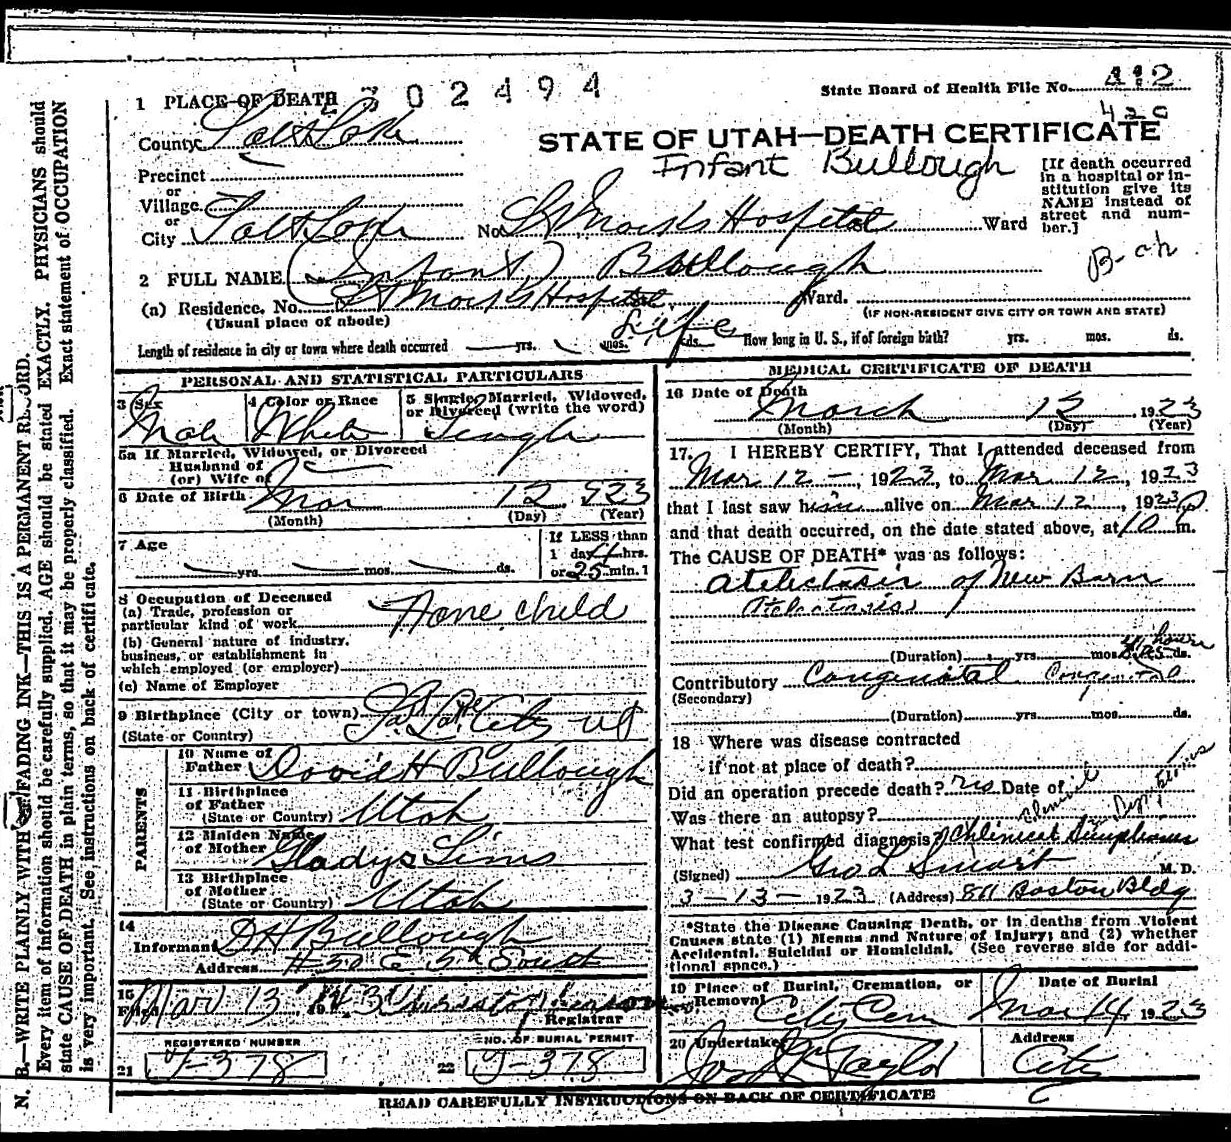 1 PLACE OF DEATH 302494
State Board of Health File No. 412
420
County Salt Lake
STATE OF UTAH—DEATH CERTIFICATE
Infant Bullough
[If death occurred in a hospital or in-
stitution give its
NAME instead of
street and num-
ber.]
Precinct
or
Village
or
City Salt Lake No. St Mark's Hospital Ward
2 FULL NAME (Infant) Bullough
(a) Residence. No. St Mark's Hospital Ward.
(Usual place of abode)
(IF NON-RESIDENT GIVE CITY OR TOWN AND STATE)
Length of residence in city or town where death occurred yrs. mos. Life ds. How long in U. S., if of foreign birth? yrs. mos. ds.
PERSONAL AND STATISTICAL PARTICULARS
3 Sex
Male
4 Color or Race
White
5 Single, Married, Widowed,
or Divorced (write the word)
Single
5a If Married, Widowed, or Divorced
Husband of
(or) Wife of
6 Date of Birth Mar 12 1923
(Month) (Day) (Year)
7 Age
yrs. mos. ds.
If LESS than
1 day 4 hrs.
or 25 min.
8 Occupation of Deceased
(a) Trade, profession or
particular kind of work None child
(b) General nature of industry,
business, or establishment in
which employed (or employer)
(c) Name of Employer
9 Birthplace (City or town) Salt Lake City Ut
(State or Country)
PARENTS
10 Name of
Father David H Bullough
11 Birthplace
of Father
(State or Country) Utah
12 Maiden Name
of Mother Gladys Sims
13 Birthplace
of Mother
(State or Country) Utah
14
Informant D H Bullough
Address 430 E 5th South
15
Filed Mar 13, 1923
Registrar
REGISTERED NUMBER
21 J-378
NO. OF BURIAL PERMIT
22 J-378
MEDICAL CERTIFICATE OF DEATH
16 Date of Death
March 12, 1923
(Month) (Day) (Year)
17. I HEREBY CERTIFY, That I attended deceased from
Mar 12 -, 1923, to Mar 12, 1923
that I last saw him alive on Mar 12, 1923
and that death occurred, on the date stated above, at 10 p m.
The CAUSE OF DEATH* was as follows:
Atelectasis of New Born
Atelectasis
(Duration) yrs. mos. ds.
hours
Contributory Congenital Congenital
(Secondary)
(Duration) yrs. mos. ds.
18 Where was disease contracted
if not at place of death?
Did an operation precede death? Date of
Was there an autopsy?
What test confirmed diagnosis? Clinical Symptoms
Clinical Symptoms
(Signed) Geo L Smart M. D.
3-13-1923 (Address) 811 Boston Bldg
*State the Disease Causing Death, or in deaths from Violent
Causes state (1) Means and Nature of Injury; and (2) whether
Accidental, Suicidal or Homicidal. (See reverse side for addi-
tional space.)
19 Place of Burial, Cremation, or
Removal City Cem
Date of Burial
Mar 14, 1923
20 Undertaker
Taylor
Address
City
READ CAREFULLY INSTRUCTIONS ON BACK OF CERTIFICATE
N. B.—WRITE PLAINLY WITH UNFADING INK—THIS IS A PERMANENT RECORD.
Every item of information should be carefully supplied. AGE should be stated EXACTLY. PHYSICIANS should
state CAUSE OF DEATH in plain terms, so that it may be properly classified. Exact statement of OCCUPATION
is very important. See instructions on back of certificate.